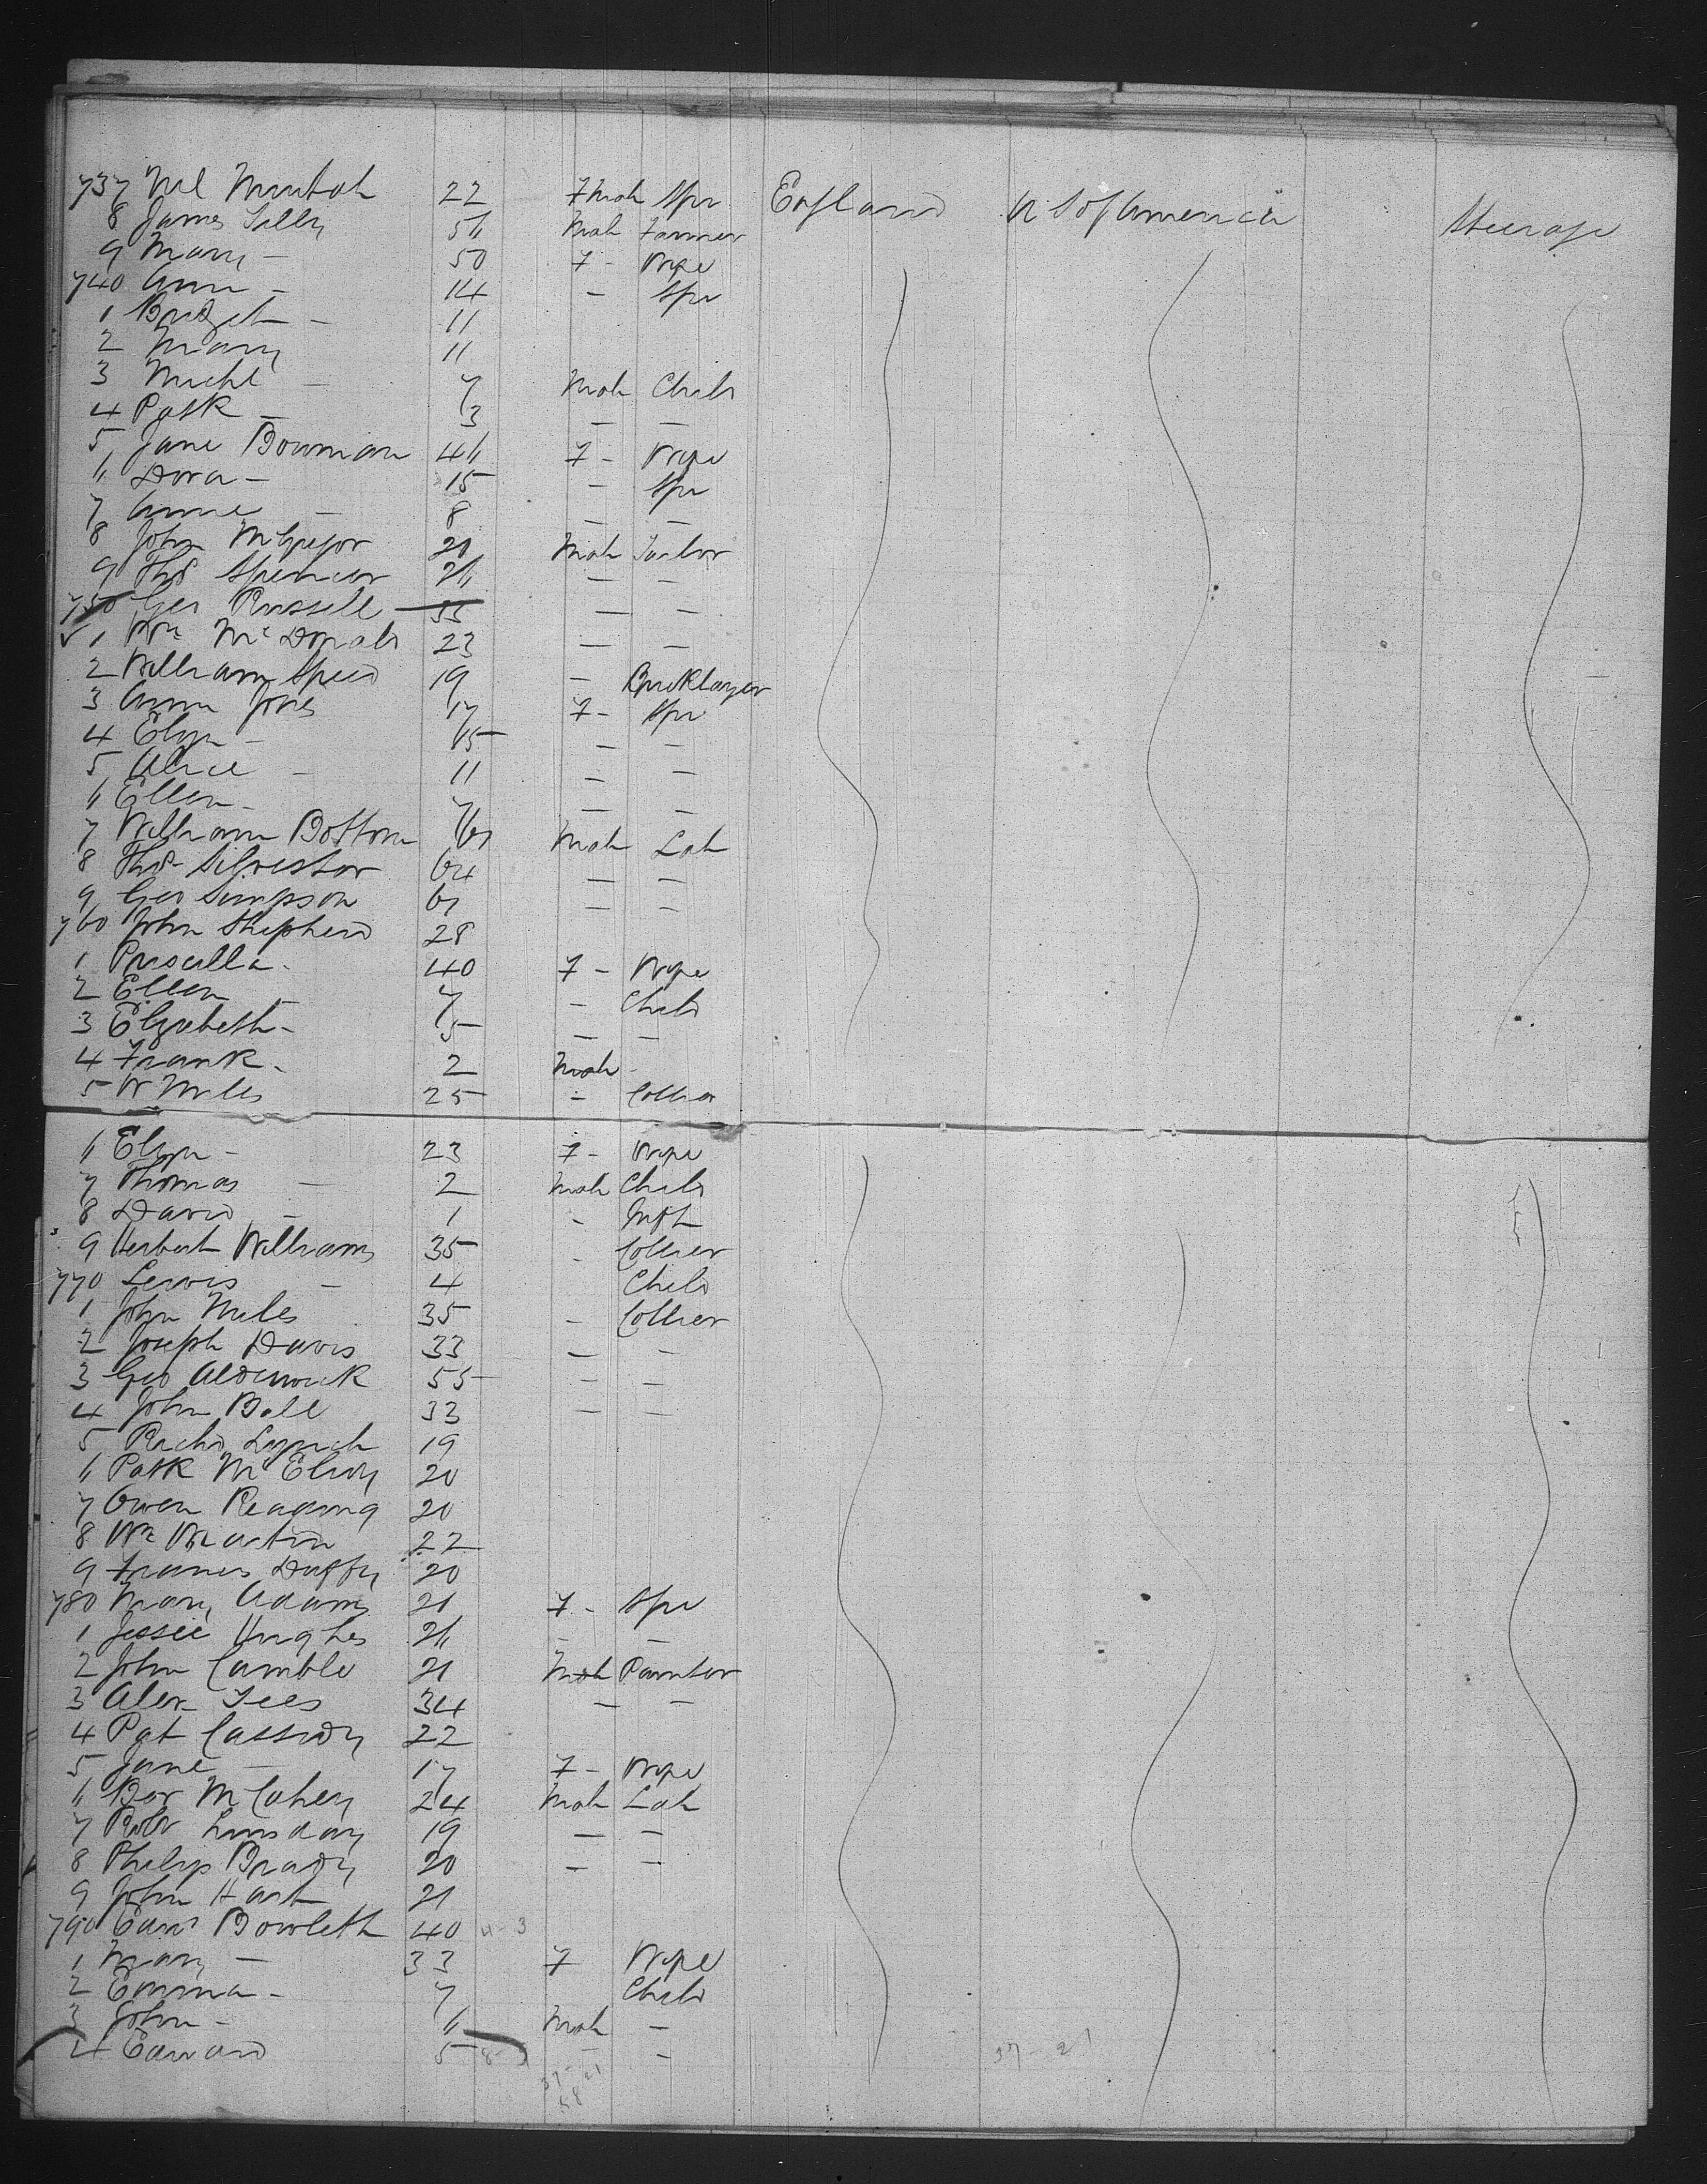 737 Ml Murtah 22 F Mah Spr England U S of America Steerage
8 James Tilly 56 Mah Farmer
9 Mary - 50 F - Wife
740 Ann - 14 - Spr
1 Bridget - 11
2 Mary 11
3 Michl - 7 Mah Child
4 Patk - 3 - -
5 Jane Bowman 46 F - Wife
6 Dora - 15 - Spr
7 Annie - 8 - -
8 John McGregor 21 Mah Tailor
9 Thos Spencer 26 - -
750 Geo Russell 35 - -
1 Wm McDonald 23 - -
2 William Speed 19 - Bricklayer
3 Anna Jones 17 F - Spr
4 Eliza - 15 - -
5 Alice - 11 - -
6 Ellen - 7 - -
7 William Bottom Mah Lab
8 Thos Silvester 64 - -
9 Geo Simpson - -
760 John Shepherd 28
1 Priscilla - 40 F - Wife
2 Ellen - 7 - Child
3 Elizabeth - 5 - -
4 Frank - 2 Mah -
5 W Miles 25 - Collier
6 Eliza - 23 F - Wife
7 Thomas - 2 Mah Child
8 David - 1 - Inft
9 Herbert Williams 35 - Collier
770 Lewis - 4 Child
1 John Miles 35 - Collier
2 Joseph Davis 33 - -
3 Geo Alderwick 55 - -
4 John Ball 33 - -
5 Richd Lynch 19
6 Patk McElroy 20
7 Owen Reading 20
8 Wm Martin 22
9 Francis Duffy 20
780 Mary Adams 21 F - Spr
1 Jessie Hughes 26 - -
2 John Camble 21 Mah Painter
3 Alex Tees 34 - -
4 Pat Cassidy 22
5 Jane - 17 F - Wife
6 Ber McCahey 24 Mah Lab
7 Robt Linsday 19 - -
8 Philip Brady 20 - -
9 John Hart 21
790 Edwd Bowleth 40
1 Mary - 33 F Wife
2 Emma - 7 Child
3 John - 6 Mah -
4 Edward 5 - -
37 - 21